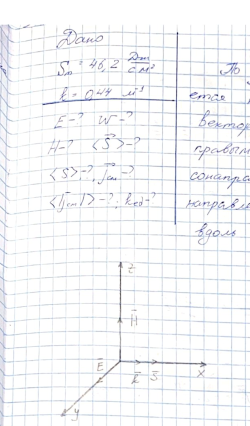 Дано
Sm = 46,2 Дж/с·м²
k = 0,44 м⁻¹
E-? W-?
H-? <S⃗>-?
<S>-?, j⃗см-?
<|jсм|>-?; kед-?
По
ется
вектор
правым
сонапра
направл
вдоль
z
H⃗
E⃗
k⃗ S⃗
x
y